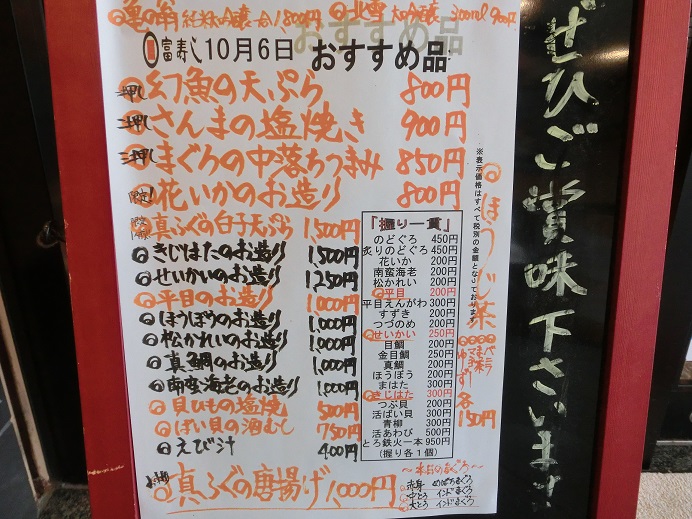 亀の翁 純米大吟醸 一合 1,800円
北雪 大吟醸 300ml 900円
富寿し 10月6日 おすすめ品
一押し 幻魚の天ぷら 800円
二押し さんまの塩焼き 900円
三押し まぐろの中落ちつまみ 850円
花いかのお造り 800円
真ふぐの白子天ぷら 1,500円
きじはたのお造り 1,500円
せいかいのお造り 1,250円
平目のお造り 1,000円
ほうぼうのお造り 1,000円
松かれいのお造り 1,000円
真鯛のお造り 1,000円
南蛮海老のお造り 1,000円
貝ひもの塩焼 500円
ばい貝の酒むし 750円
えび汁 400円
真ふぐの唐揚げ 1,000円
「握り一貫」
のどぐろ 450円
炙りのどぐろ 450円
花いか 200円
南蛮海老 200円
松かれい 200円
平目 200円
平目えんがわ 300円
すずき 200円
つづのめ 200円
せいかい 250円
目鯛 200円
金目鯛 300円
真鯛 200円
ほうぼう 200円
まはた 300円
きじはた 300円
つぶ貝 200円
活ばい貝 300円
青柳 200円
活あわび 500円
とろ鉄火一本 950円
(握り各1個)
〜本日のまぐろ〜
赤身 めばちまぐろ
中とろ インドまぐろ
大とろ インドまぐろ
※表示価格はすべて税別の金額となっております
ほうじ茶
バニラ
抹茶
ゆず
各150円
ぜひご賞味下さいませ